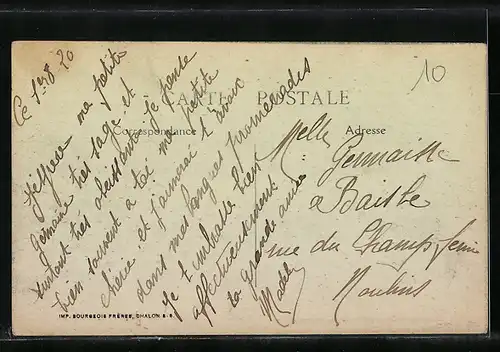 Ce 1er 8 20
CARTE POSTALE
Correspondance
Adresse
10
J'espère ma petite
Germaine très sage et
surtout très obéissante je pense
bien souvent a toi ma petite
cherie et j'aimerai t'avoir
dans mes longues promenades
Je t'embrasse bien
affectueusement
ta grande amie
Melle
Germaine
a
rue du Champ
Moulins
IMP. BOURGEOIS FRÈRES, CHALON S-S.